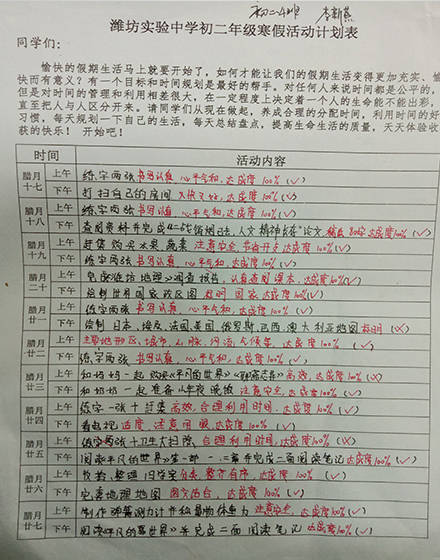 初二
潍坊实验中学初二年级寒假活动计划表
同学们：
愉快的假期生活马上就要开始了，如何才能让我们的假期生活变得更加充实、愉
快而有意义？有一个目标和时间规划是最好的帮手。对任何人来说时间都是公平的，
但是对时间的管理和利用相差很大，在一定程度上决定着一个人的生命能不能出彩，
直至把人与人区分开来。请同学们从现在做起，养成合理的分配时间，利用时间的好
习惯，每天规划一下自己的生活，每天总结盘点，提高生命生活的质量，天天体验收
获的快乐！ 开始吧！
时间 活动内容
腊月十七 上午 练字两张 书写认真，心平气和，达成度100%（√）
下午 打扫自己的房间 达成度100%（√）
腊月十八 上午 练字两张 书写认真，心平气和，达成度100%（√）
下午 查阅资料并完成 人文精神 论文 达成度100%（√）
腊月十九 上午 赶集购买水果蔬菜 注意安全，节省开支 达成度100%（√）
下午 练字两张 书写认真，心平气和，达成度100%（√）
腊月二十 上午 完成潍坊地理调查报告，认真查阅课本，达成度100%（√）
下午 绘制世界国家政区图 标明国家 达成度100%（√）
腊月廿一 上午 练字两张 书写认真，心平气和，达成度100%（√）
下午 绘制日本、埃及、法国、美国、俄罗斯、巴西、澳大利亚地图 标明（×）
腊月廿二 上午 主要地形区、城市、山脉、河流、气候等，达成度100%（√）
下午 练字两张 书写认真，心平气和，达成度100%（√）
腊月廿三 上午 和妈妈一起购买《平凡的世界》 高效，达成度100%（×）
下午 和妈妈一起准备小年夜晚饭 注意安全，达成度100%（√）
腊月廿四 上午 练字一张＋赶集 高效，合理利用时间，达成度100%（√）
下午 看电视 适度 注意用眼，达成度100%（√）
腊月廿五 上午 练字两张＋卫生大扫除，合理利用时间，达成度100%（×）
下午 阅读《平凡的世界》第一部 并完成二面阅读笔记 达成度100%（√）
腊月廿六 上午 整理旧学案 分类，整齐有序，达成度100%（√）
下午 完善地理地图 图文结合，达成度100%（√）
腊月廿七 上午 制作弹簧测力计并称量物体重力 注意安全，达成度100%（√）
下午 阅读《平凡的世界》并完成二面阅读笔记 达成度100%（√）